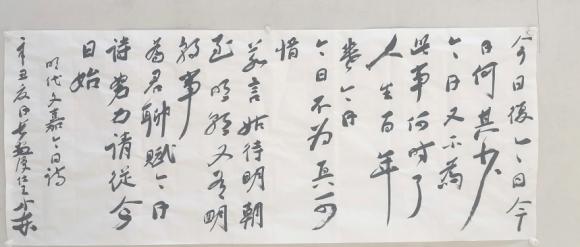 今日復今日今
日何其少
今日又不為
此事何时了
人生百年
幾今日
今日不为真可
惜
若言姑待明朝
至明朝又有明
朝事
為君聊赋今日
诗努力请從今
日始
明代文嘉今日诗
辛丑夏日